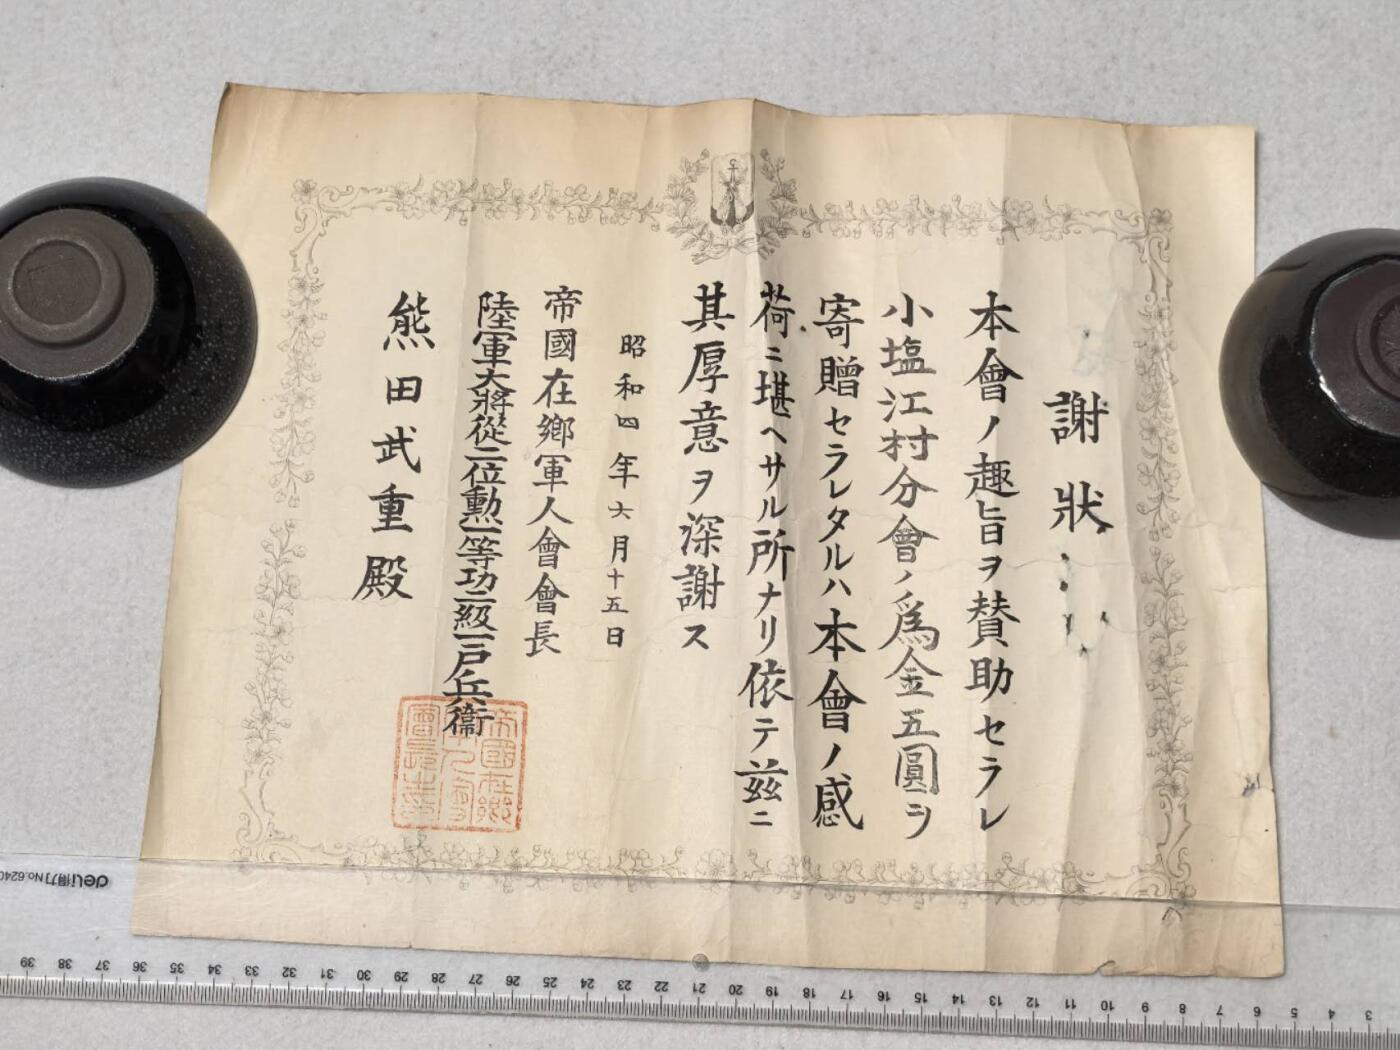 謝狀
本會ノ趣旨ヲ賛助セラレ
小塩江村分會ノ爲金五圓ヲ
寄贈セラレタルハ本會ノ感
荷ニ堪ヘサル所ナリ依テ茲ニ
其厚意ヲ深謝ス
昭和四年六月十五日
帝國在鄉軍人會會長
陸軍大將從二位勲一等功二級一戸兵衞
熊田武重殿
帝國在鄉
軍人會
會長之章
deli得力 No.6240
39 38 37 36 35 34 33 32 31 30 29 28 27 26 25 24 23 22 21 20 19 18 17 16 15 14 13 12 11 10 9 8 7 6 5 4 3